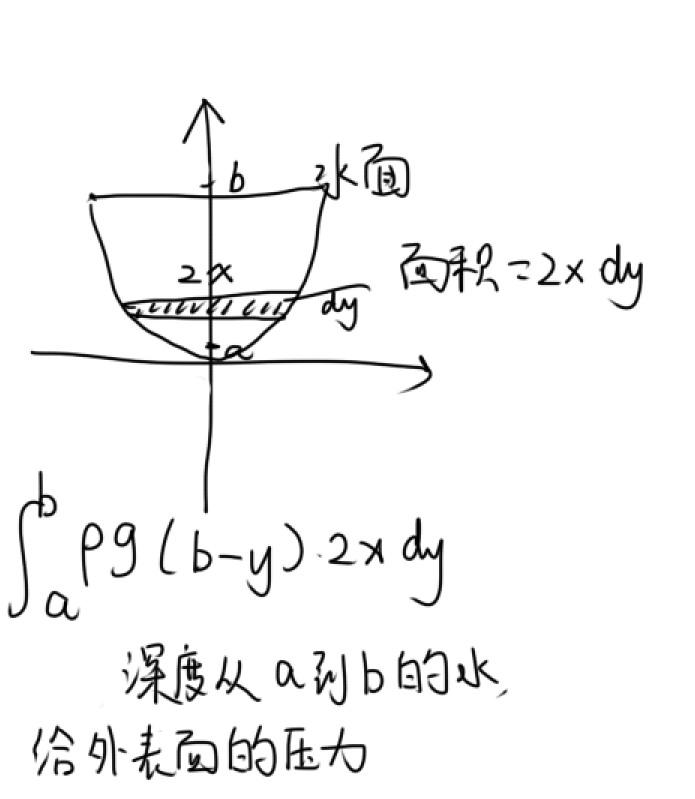 b 水面
2x
面积=2x dy
dy
a
∫_a^b ρg(b-y)·2x dy
深度从a到b的水,
给外表面的压力